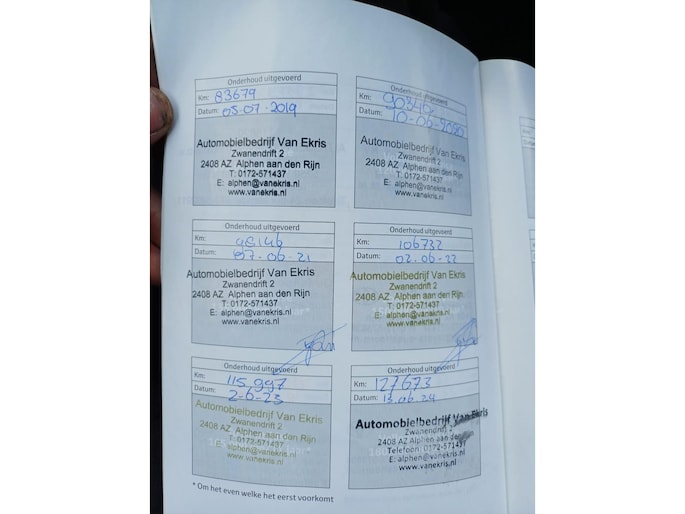 Onderhoud uitgevoerd
Km: 83679
Datum: 05-07-2019
Automobielbedrijf Van Ekris
Zwanendrift 2
2408 AZ Alphen aan den Rijn
T: 0172-571437
E: alphen@vanekris.nl
www.vanekris.nl
Onderhoud uitgevoerd
Km: 90340
Datum: 10-06-2020
Automobielbedrijf Van Ekris
Zwanendrift 2
2408 AZ Alphen aan den Rijn
T: 0172-571437
E: alphen@vanekris.nl
www.vanekris.nl
Onderhoud uitgevoerd
Km: 98146
Datum: 07-06-21
Automobielbedrijf Van Ekris
Zwanendrift 2
2408 AZ Alphen aan den Rijn
T: 0172-571437
E: alphen@vanekris.nl
www.vanekris.nl
Onderhoud uitgevoerd
Km: 106732
Datum: 02.06.22
Automobielbedrijf Van Ekris
Zwanendrift 2
2408 AZ Alphen aan den Rijn
T: 0172-571437
E: alphen@vanekris.nl
www.vanekris.nl
Onderhoud uitgevoerd
Km: 115.997
Datum: 2-6-23
Automobielbedrijf Van Ekris
Zwanendrift 2
2408 AZ Alphen aan den Rijn
T: 0172-571437
E: alphen@vanekris.nl
www.vanekris.nl
Onderhoud uitgevoerd
Km: 127673
Datum: 13.06.24
Automobielbedrijf Van Ekris
Zwanendrift 2
2408 AZ Alphen aan den
Telefoon: 0172-571437
E: alphen@vanekris.nl
www.vanekris.nl
* Om het even welke het eerst voorkomt